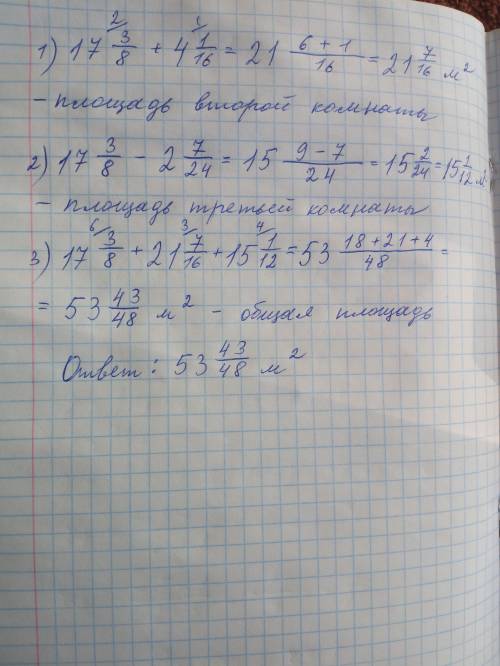 1) 17 3/8 + 4 1/16 = 21 (6+1)/16 = 21 7/16 м²
– площадь второй комнаты
2) 17 3/8 - 2 7/24 = 15 (9-7)/24 = 15 2/24 = 15 1/12 м²
– площадь третьей комнаты
3) 17 3/8 + 21 7/16 + 15 1/12 = 53 (18+21+4)/48 =
= 53 43/48 м² - общая площадь
Ответ: 53 43/48 м²